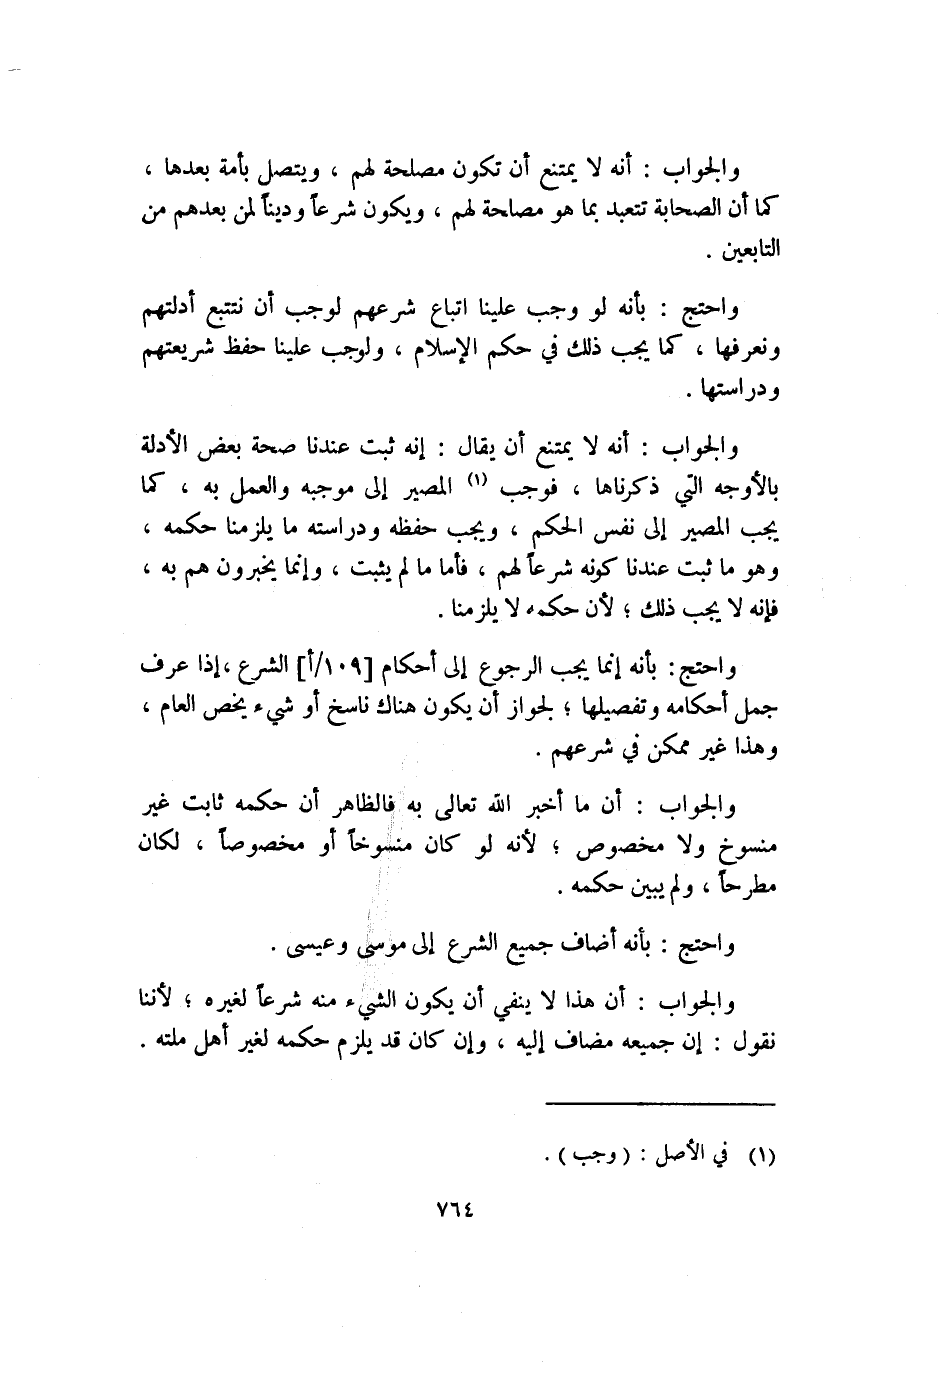 والجواب : أنه لا يمتنع أن تكون مصلحة لهم ، ويتصل بأمة بعدها ،
كما أن الصحابة تتعبد بما هو مصلحة لهم ، ويكون شرعاً وديناً لمن بعدهم من
التابعين .
واحتج : بأنه لو وجب علينا اتباع شرعهم لوجب أن نتتبع أدلتهم
ونعرفها ، كما يجب ذلك في حكم الإسلام ، ولوجب علينا حفظ شريعتهم
ودراستها .
والجواب : أنه لا يمتنع أن يقال : إنه ثبت عندنا صحة بعض الأدلة
بالأوجه التي ذكرناها ، فوجب (١) المصير إلى موجبه والعمل به ، كما
يجب المصير إلى نفس الحكم ، ويجب حفظه ودراسته ما يلزمنا حكمه ،
وهو ما ثبت عندنا كونه شرعاً لهم ، فأما ما لم يثبت ، وإنما يخبرون هم به ،
فإنه لا يجب ذلك ؛ لأن حكمه لا يلزمنا .
واحتج : بأنه إنما يجب الرجوع إلى أحكام [١٠٩/أ] الشرع ،إذا عرف
جمل أحكامه وتفصيلها ؛ لجواز أن يكون هناك ناسخ أو شيء يخص العام ،
وهذا غير ممكن في شرعهم .
والجواب : أن ما أخبر الله تعالى به فالظاهر أن حكمه ثابت غير
منسوخ ولا مخصوص ؛ لأنه لو كان منسوخاً أو مخصوصاً ، لكان
مطرحاً ، ولم يبين حكمه .
واحتج : بأنه أضاف جميع الشرع إلى موسى وعيسى .
والجواب : أن هذا لا ينفي أن يكون الشيء منه شرعاً لغيره ؛ لأننا
نقول : إن جميعه مضاف إليه ، وإن كان قد يلزم حكمه لغير أهل ملته .
(١) في الأصل : ( وجب ) .
٧٦٤